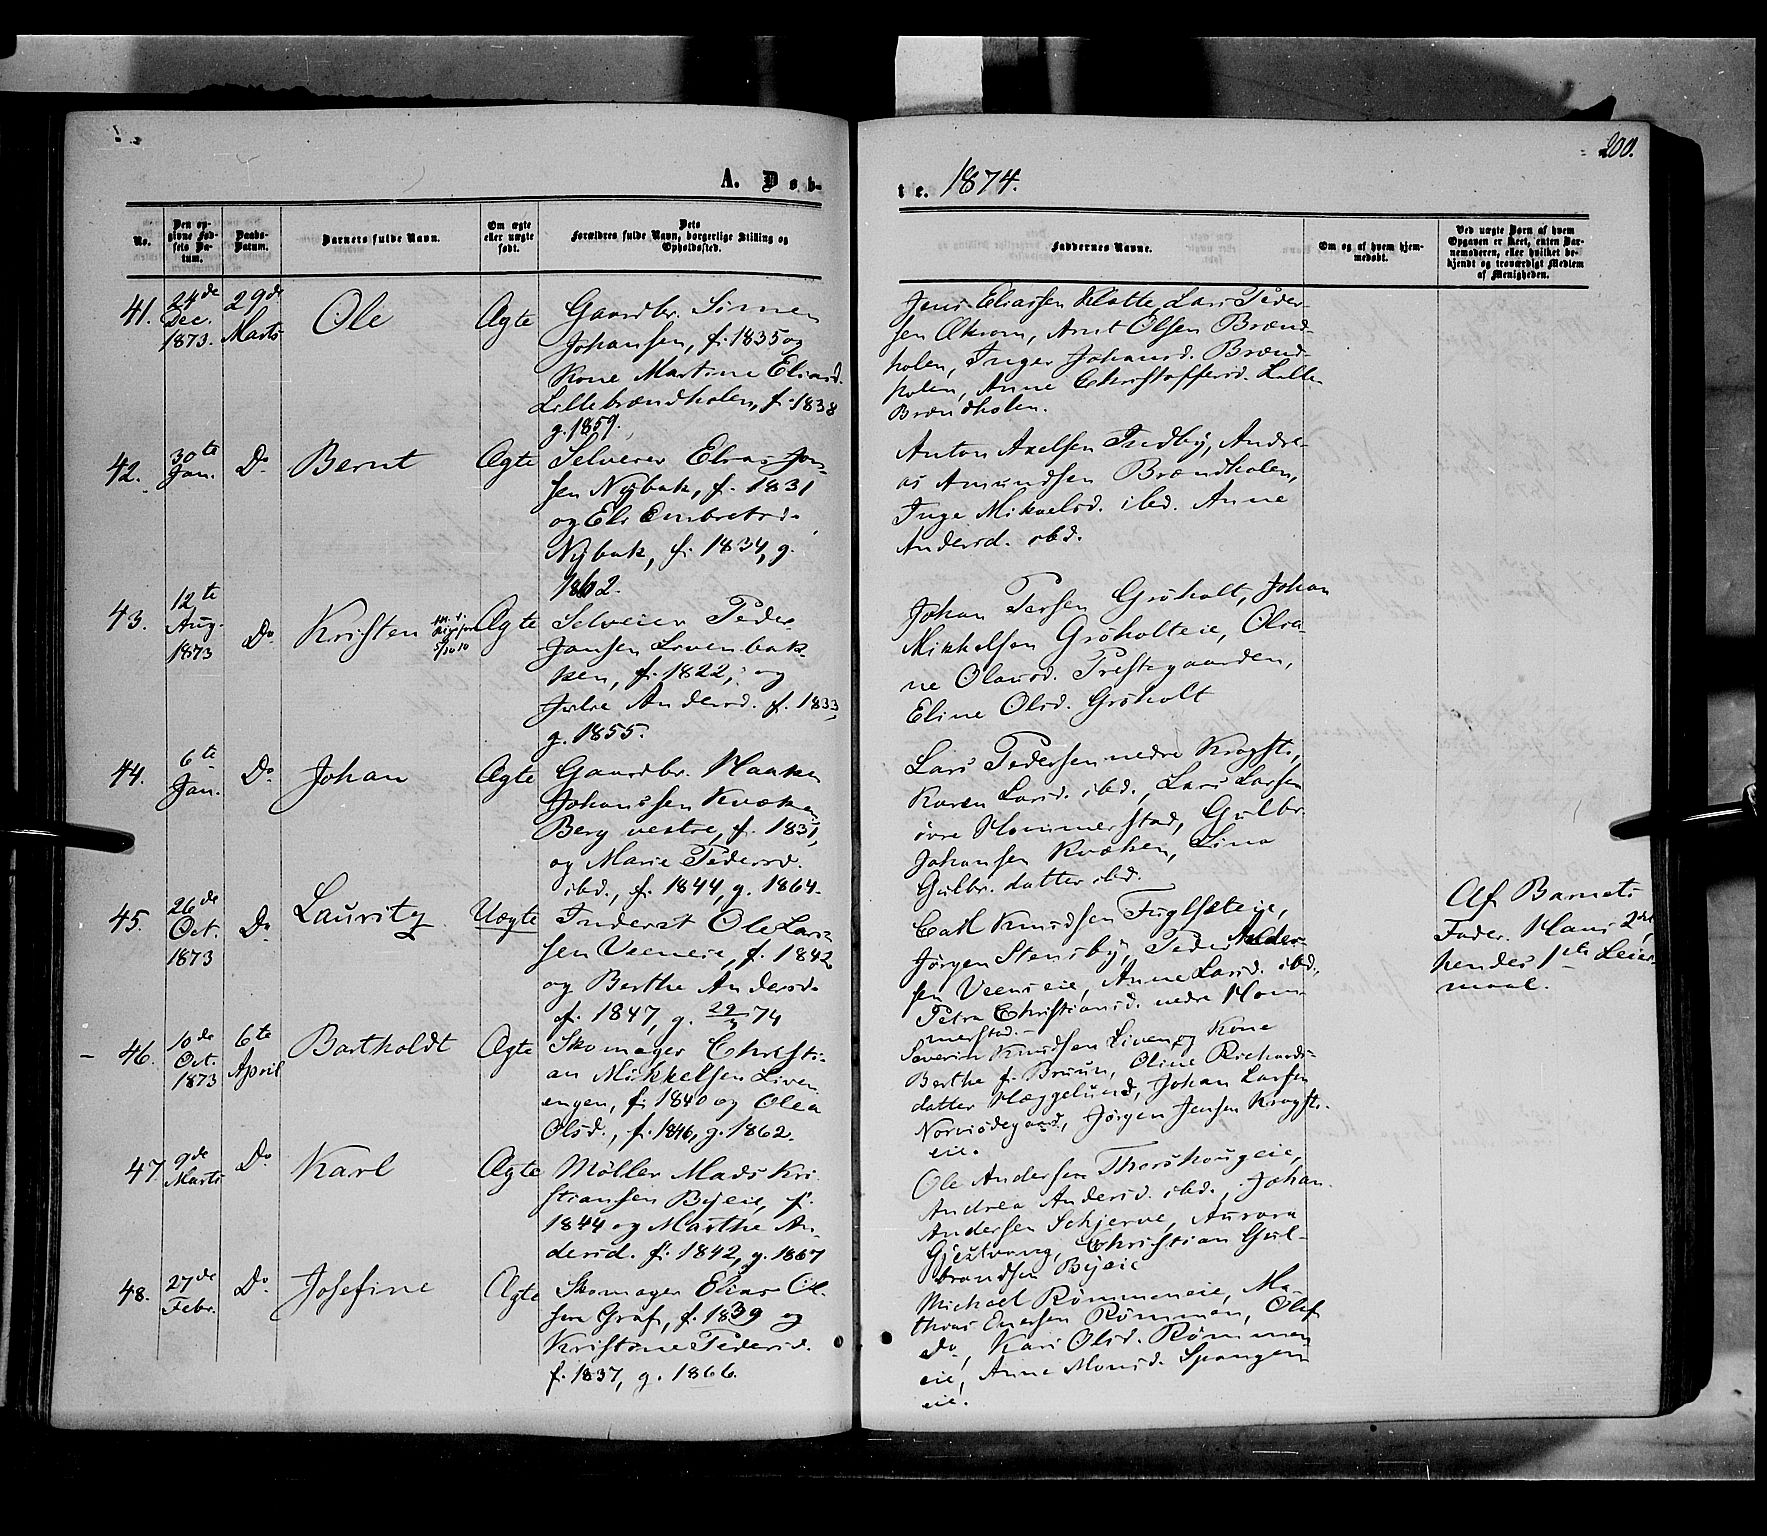 A. Døb-
te. 1874.
200.
No.
Den op-
givne Fød-
sels Da-
tum.
Daabs-
Datum.
Barnets fulde Navn.
Om ægte
eller uægte
født.
Dets
Forældres fulde Navn, borgerlige Stilling og
Opholdssted.
Faddernes Navne.
Om og af hvem hjem-
medøbt.
Ved uægte Børn af hvem
Opgaven er skeet, enten Bar-
nemoderen, eller hvilket be-
kjendt og troværdigt Medlem
af Menigheden.
41.
24de
Dec.
1873.
29de
Marts
Ole
Ægte
Gaardbr. Simen
Johansen, f. 1835 og
Kone Martine Eliasd.
Lillebrændholen, f. 1838
g. 1859.
Jens Eliassen Klatte, Lars Peder-
sen Økrom, Arnt Olsen Brænd-
holen, Inger Johansd. Brænd-
holen, Anne Christoffersd. Lille
Brændholen.
42.
30te
Jan.
Do
Bernt
Ægte
Selveier Elias Jon-
sen Nybak, f. 1831
og Eli Embretsd.
Nybak, f. 1834, g.
1862.
Anton Axelsen Tredby, Andre-
as Amundsen Brændholen,
Inge Mikaelsd. ibd. Anne
Andersd. ibd.
43.
12te
Aug.
1873
Do
Kristen
5/10 10
Ægte
Selveier Peder
Jansen Lovenbak-
ken, f. 1822, og
Julie Andersd. f. 1833,
g. 1855.
Johan Persen Grøholt, Johan
Mikkelsen Grøholteie, Olea-
ne Olausd. Prestegaarden,
Eline Olsd. Grøholt
44.
6te
Jan.
Do
Johan
Ægte
Gaardbr. Haaken
Johanssen Kvæken
Berg vestre, f. 1831,
og Marie Pedersd.
ibd., f. 1844, g. 1864.
Lars Pedersen nedre Krogsti,
Karen Larsd. ibd., Lars Larsen
øvre Hommerstad, Gulbr.
Johansen Kvæken, Lina
Gulbr. datter ibd.
45.
26de
Oct.
1873
Do
Lauritz
Uægte
Inderst Ole Lar-
sen Veeneie, f. 1842
og Berthe Andersd.
f. 1847, g. 29/3 74
Carl Knudsen Fuglsteie,
Jørgen Stensby, Peder Ander-
sen Veeneie, Anne Larsd. ibd,
Petra Christiansd. nedre Hom-
merstad.
Af Barnets
Fader. Hans 2det,
hendes 1ste Leier-
maal.
46.
10de
Oct.
1873
6te
April
Bartholdt
Ægte
Skomager Christi-
an Mikkelsen Liven
engen, f. 1840 og Olea
Olsd., f. 1846, g. 1862.
Severin Knudsen Liven og Kone
Berthe f. Bruun, Oline Richards-
datter Hæggelund, Johan Larsen
Nordødegaard, Jørgen Jensen Krogsti-
eie.
47.
9de
Marts
Do
Karl
Ægte
Møller Mads Kri-
stiansen Byeie, f.
1844 og Marthe An-
dersd. f. 1842, g. 1867
Ole Andersen Thorshougeie,
Andrea Andersd. ibd., Johan
Andersen Schjerve, Aurora
Gjestvang, Christian Gul-
brandsen Byeie
48.
27de
Febr.
Do
Josefine
Ægte
Skomager Elias Ol-
sen Graf, f. 1839 og
Kristine Pedersd.
f. 1837, g. 1866.
Michael Rømmeneie, Ma-
thias Enersen Rømmen, Olef
Do, Kari Olsd. Rømmen
eie, Anne Monsd. Spangen-
eie.